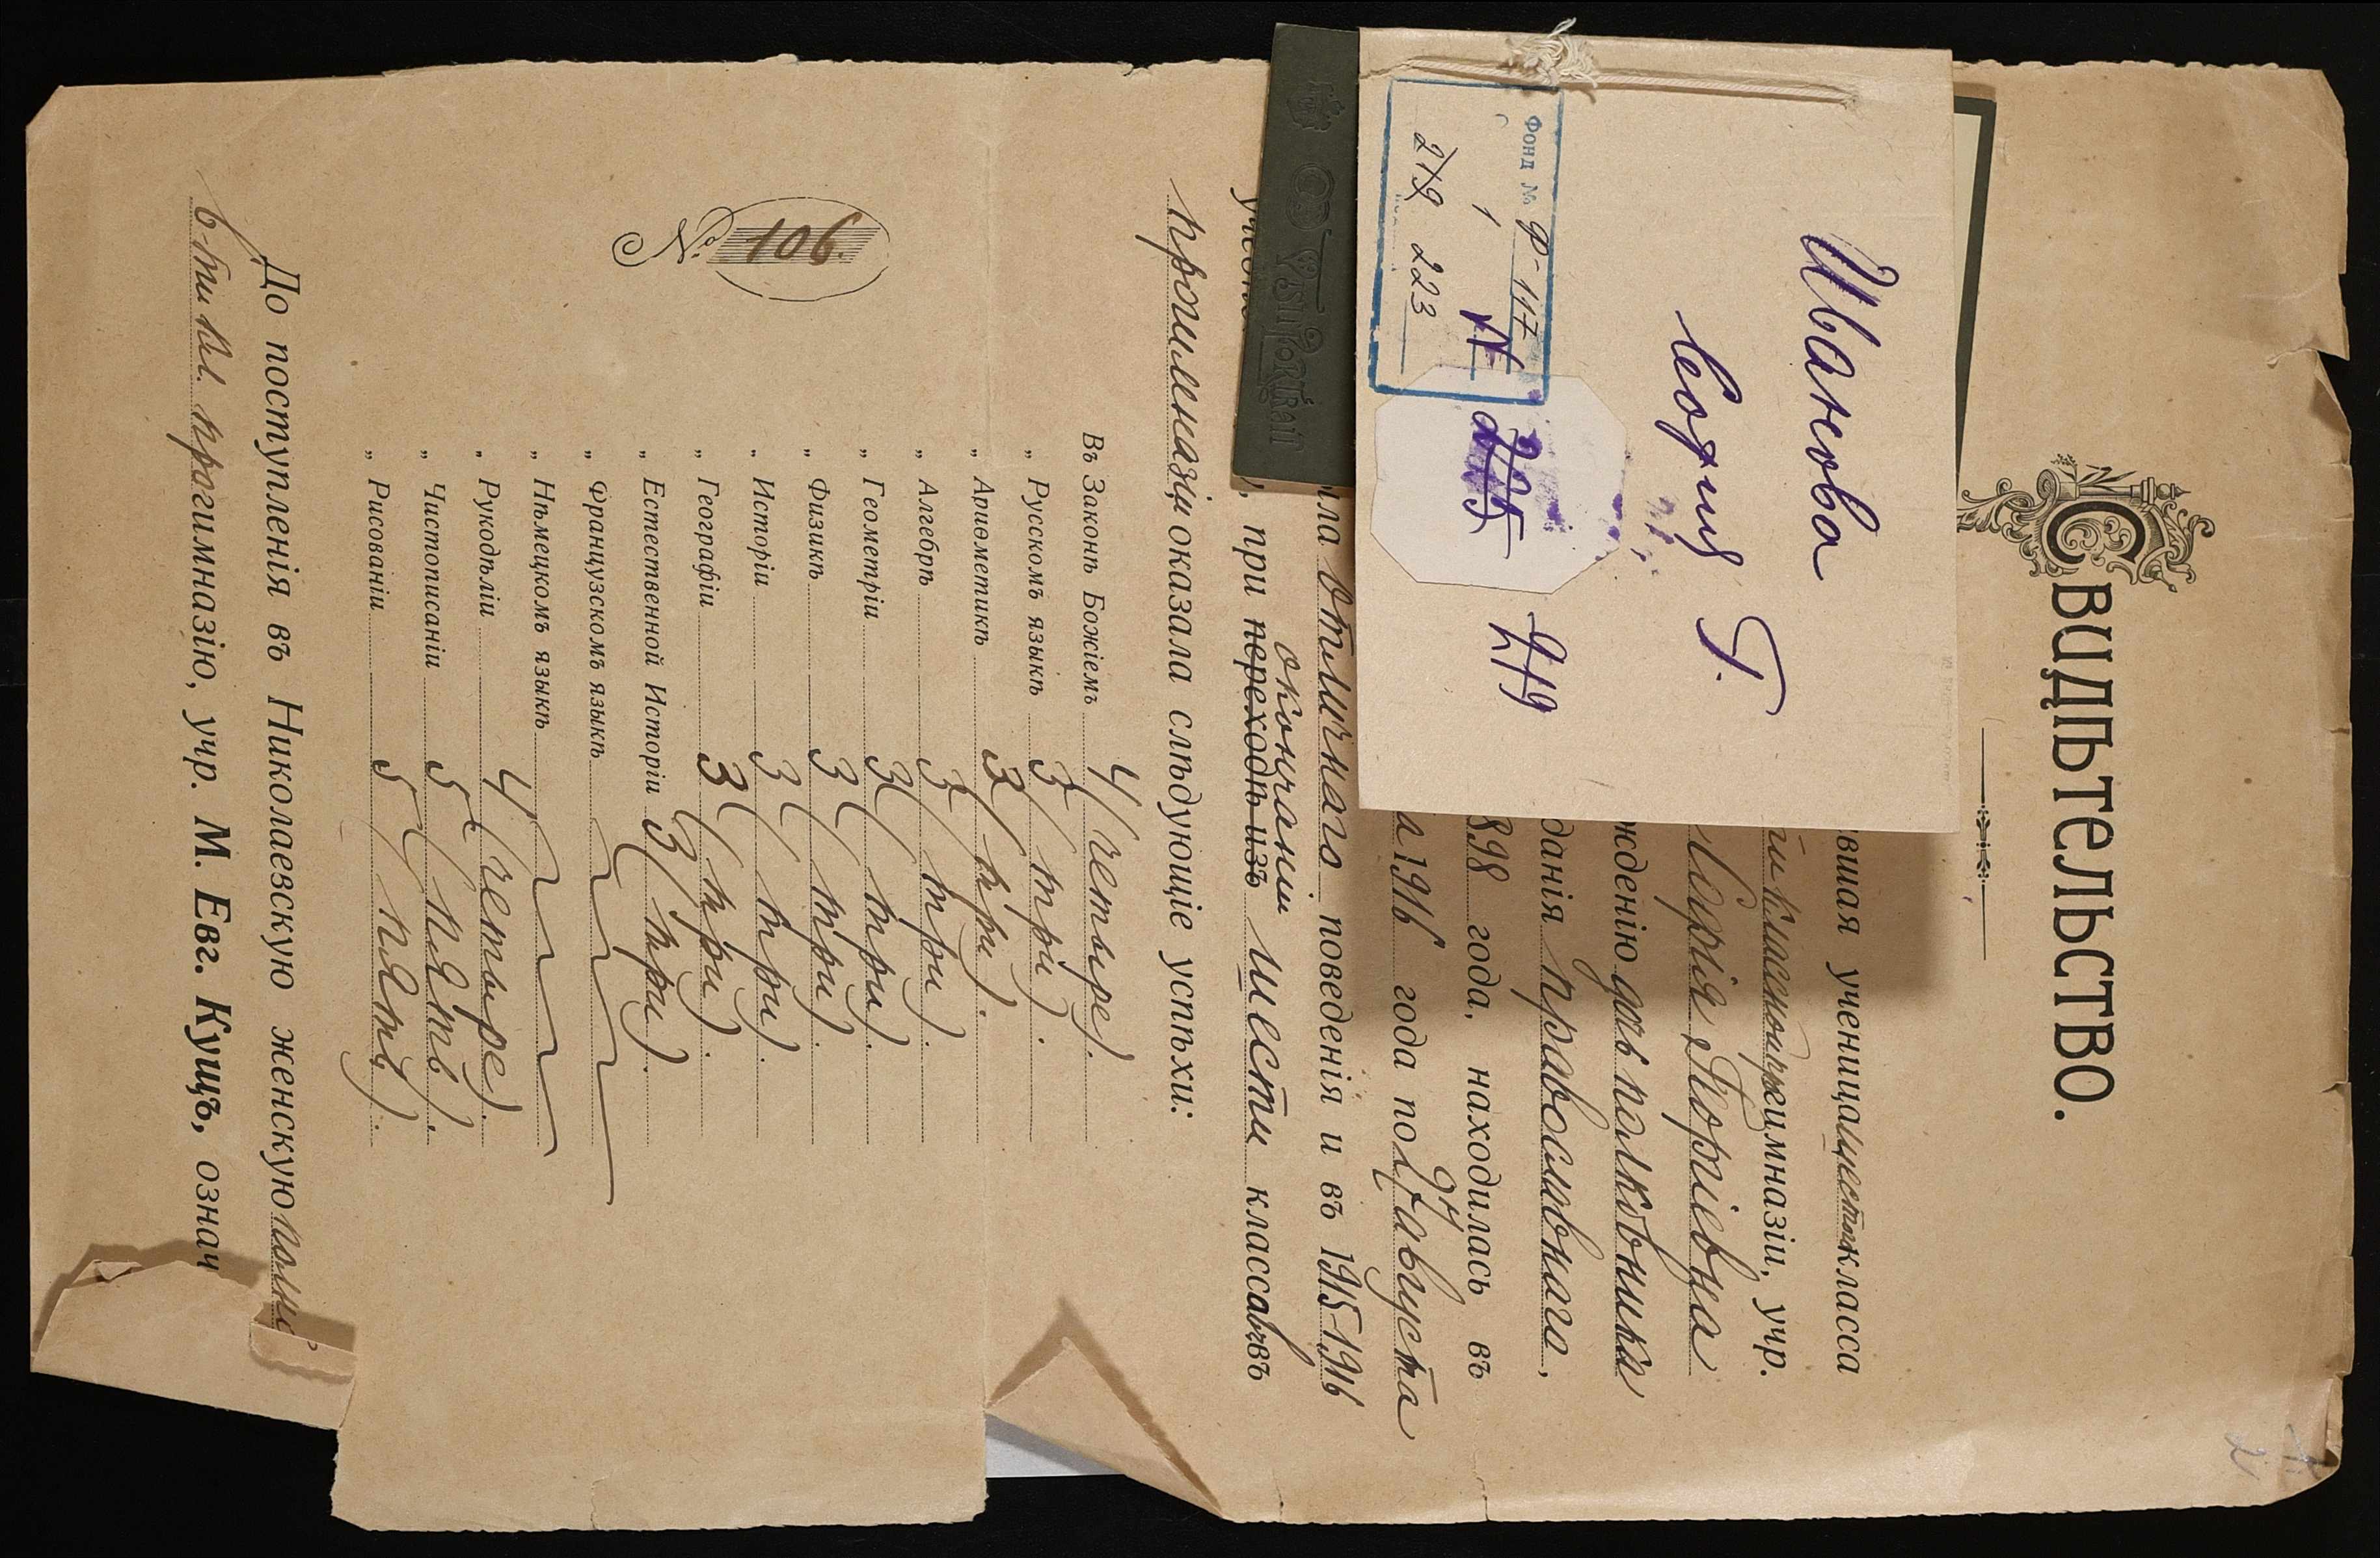 СВИДѢТЕЛЬСТВО.
Иванова
София Г.
Фонд № Ф-117
1
219 223
N 225
219
вшая ученица шестого класса
классной прогимназіи, учр.
Софія Георгіевна
жденію дочь полковника
данія православнаго,
898 года, находилась въ
а 1916 года по 9 августа
ила отличнаго поведенія и въ 1915-1916
окончании
при переходѣ изъ шести классовъ въ
прогимназіи оказала слѣдующіе успѣхи:
Въ Законѣ Божіемъ 4 (четыре).
„ Русскомъ языкѣ 3 (три).
„ Ариѳметикѣ 3 (три).
„ Алгебрѣ 3 (три).
„ Геометріи 3 (три).
„ Физикѣ 3 (три).
„ Исторіи 3 (три).
„ Географіи 3 (три).
„ Естественной Исторіи 3 (три).
„ Французскомъ языкѣ
„ Нѣмецкомъ языкѣ
„ Рукодѣліи 4 (четыре).
„ Чистописаніи 5 (пять).
„ Рисованіи 5 (пять).
№ 106.
До поступленія въ Николаевскую женскую
6-ти кл. прогимназію, учр. М. Евг. Кущъ,означ